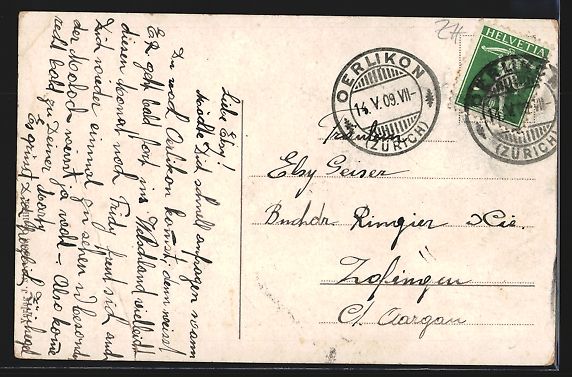 ZH
HELVETIA
OERLIKON
14.V.09.VII-
(ZÜRICH)
OERLIKON
(ZÜRICH)
Fräulein
Elsy Geiser
Buchdr. Ringier & Cie.
Zofingen
Ct. Aargau
Liebe Elsy!
Möchte Dich schnell anfragen wann
Du nach Oerlikon kommst, denn weisst
Er geht bald fort ins Welschland vielleicht
diesen Monat noch. Fridy freut sich auch
Dich wieder einmal zu sehen & besonders
der nennt ja nach - Also komme
recht bald zu Deiner Martha
Es grüsst Dich herzlich